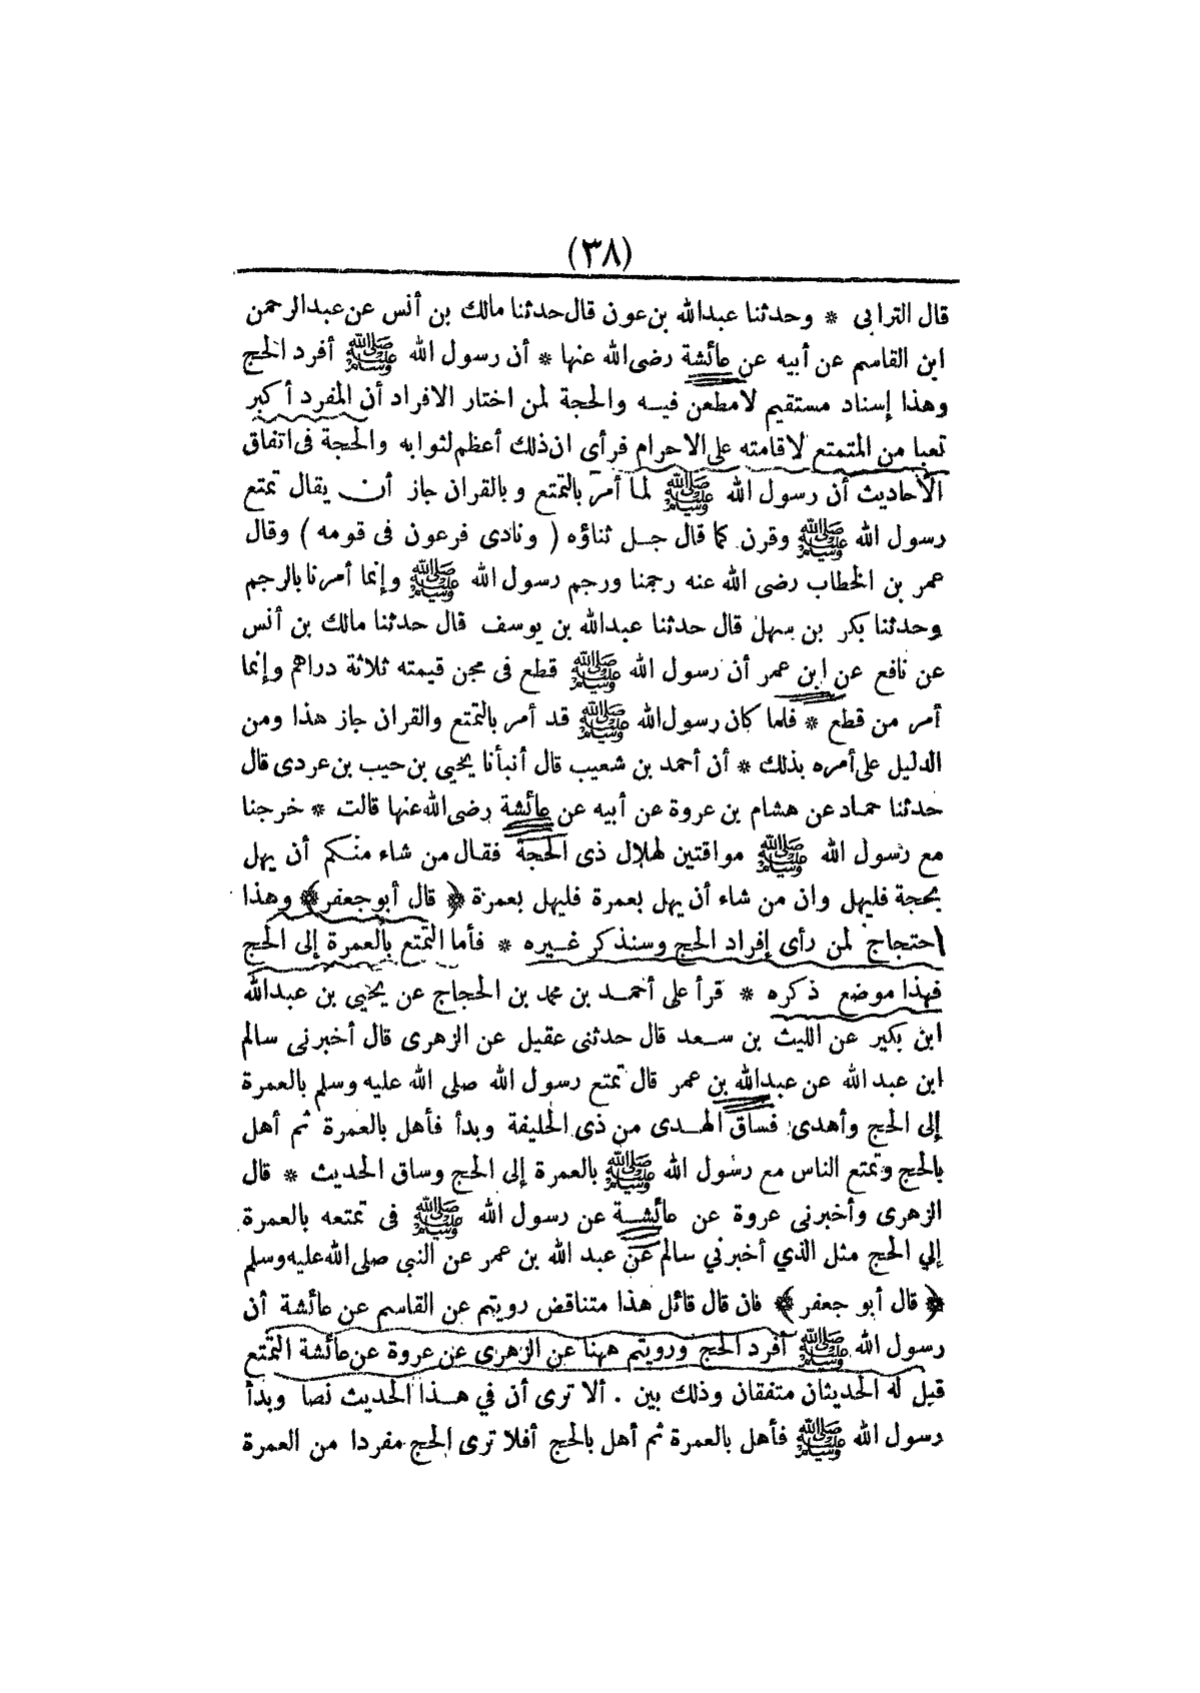 (٣٨)
قال الترابى * وحدثنا عبدالله بن عون قال حدثنا مالك بن أنس عن عبدالرحمن
ابن القاسم عن أبيه عن عائشة رضى الله عنها * أن رسول الله ﷺ أفرد الحج
وهذا إسناد مستقيم لامطعن فيه والحجة لمن اختار الافراد أن المفرد أكبر
تعبا من المتمتع لاقامته على الاحرام فرأى ان ذلك أعظم لثوابه والحجة فى اتفاق
الأحاديث أن رسول الله ﷺ لما أمر بالتمتع وبالقران جاز أن يقال تمتع
رسول الله ﷺ وقرن كما قال جل ثناؤه ( ونادى فرعون فى قومه ) وقال
عمر بن الخطاب رضى الله عنه رجمنا ورجم رسول الله ﷺ وإنما أمرنا بالرجم
وحدثنا بكر بن سهل قال حدثنا عبدالله بن يوسف قال حدثنا مالك بن أنس
عن نافع عن ابن عمر أن رسول الله ﷺ قطع فى مجن قيمته ثلاثة دراهم وإنما
أمر من قطع * فلما كان رسول الله ﷺ قد أمر بالتمتع والقران جاز هذا ومن
الدليل على أمره بذلك * أن أحمد بن شعيب قال أنبأنا يحيى بن حبيب بن عردى قال
حدثنا حماد عن هشام بن عروة عن أبيه عن عائشة رضى الله عنها قالت * خرجنا
مع رسول الله ﷺ مواقتين لهلال ذى الحجة فقال من شاء منكم أن يهل
بحجة فليهل وان من شاء أن يهل بعمرة فليهل بعمرة ﴿ قال أبو جعفر ﴾ وهذا
احتجاج لمن رأى إفراد الحج وسنذكر غيره * فأما التمتع بالعمرة إلى الحج
فهذا موضع ذكره * قرأ على أحمد بن محمد بن الحجاج عن يحيى بن عبدالله
ابن بكير عن الليث بن سعد قال حدثنى عقيل عن الزهرى قال أخبرنى سالم
ابن عبد الله عن عبدالله بن عمر قال تمتع رسول الله صلى الله عليه وسلم بالعمرة
إلى الحج وأهدى فساق الهدى من ذى الحليفة وبدأ فأهل بالعمرة ثم أهل
بالحج وتمتع الناس مع رسول الله ﷺ بالعمرة إلى الحج وساق الحديث * قال
الزهرى وأخبرنى عروة عن عائشة عن رسول الله ﷺ فى تمتعه بالعمرة
إلي الحج مثل الذي أخبرني سالم عن عبد الله بن عمر عن النبي صلى الله عليه وسلم
﴿ قال أبو جعفر ﴾ فان قال قائل هذا متناقض رويتم عن القاسم عن عائشة أن
رسول الله ﷺ أفرد الحج ورويتم ههنا عن الزهرى عن عروة عن عائشة التمتع
قيل له الحديثان متفقان وذلك بين . ألا ترى أن في هذا الحديث نصا وبدأ
رسول الله ﷺ فأهل بالعمرة ثم أهل بالحج أفلا ترى الحج مفردا من العمرة